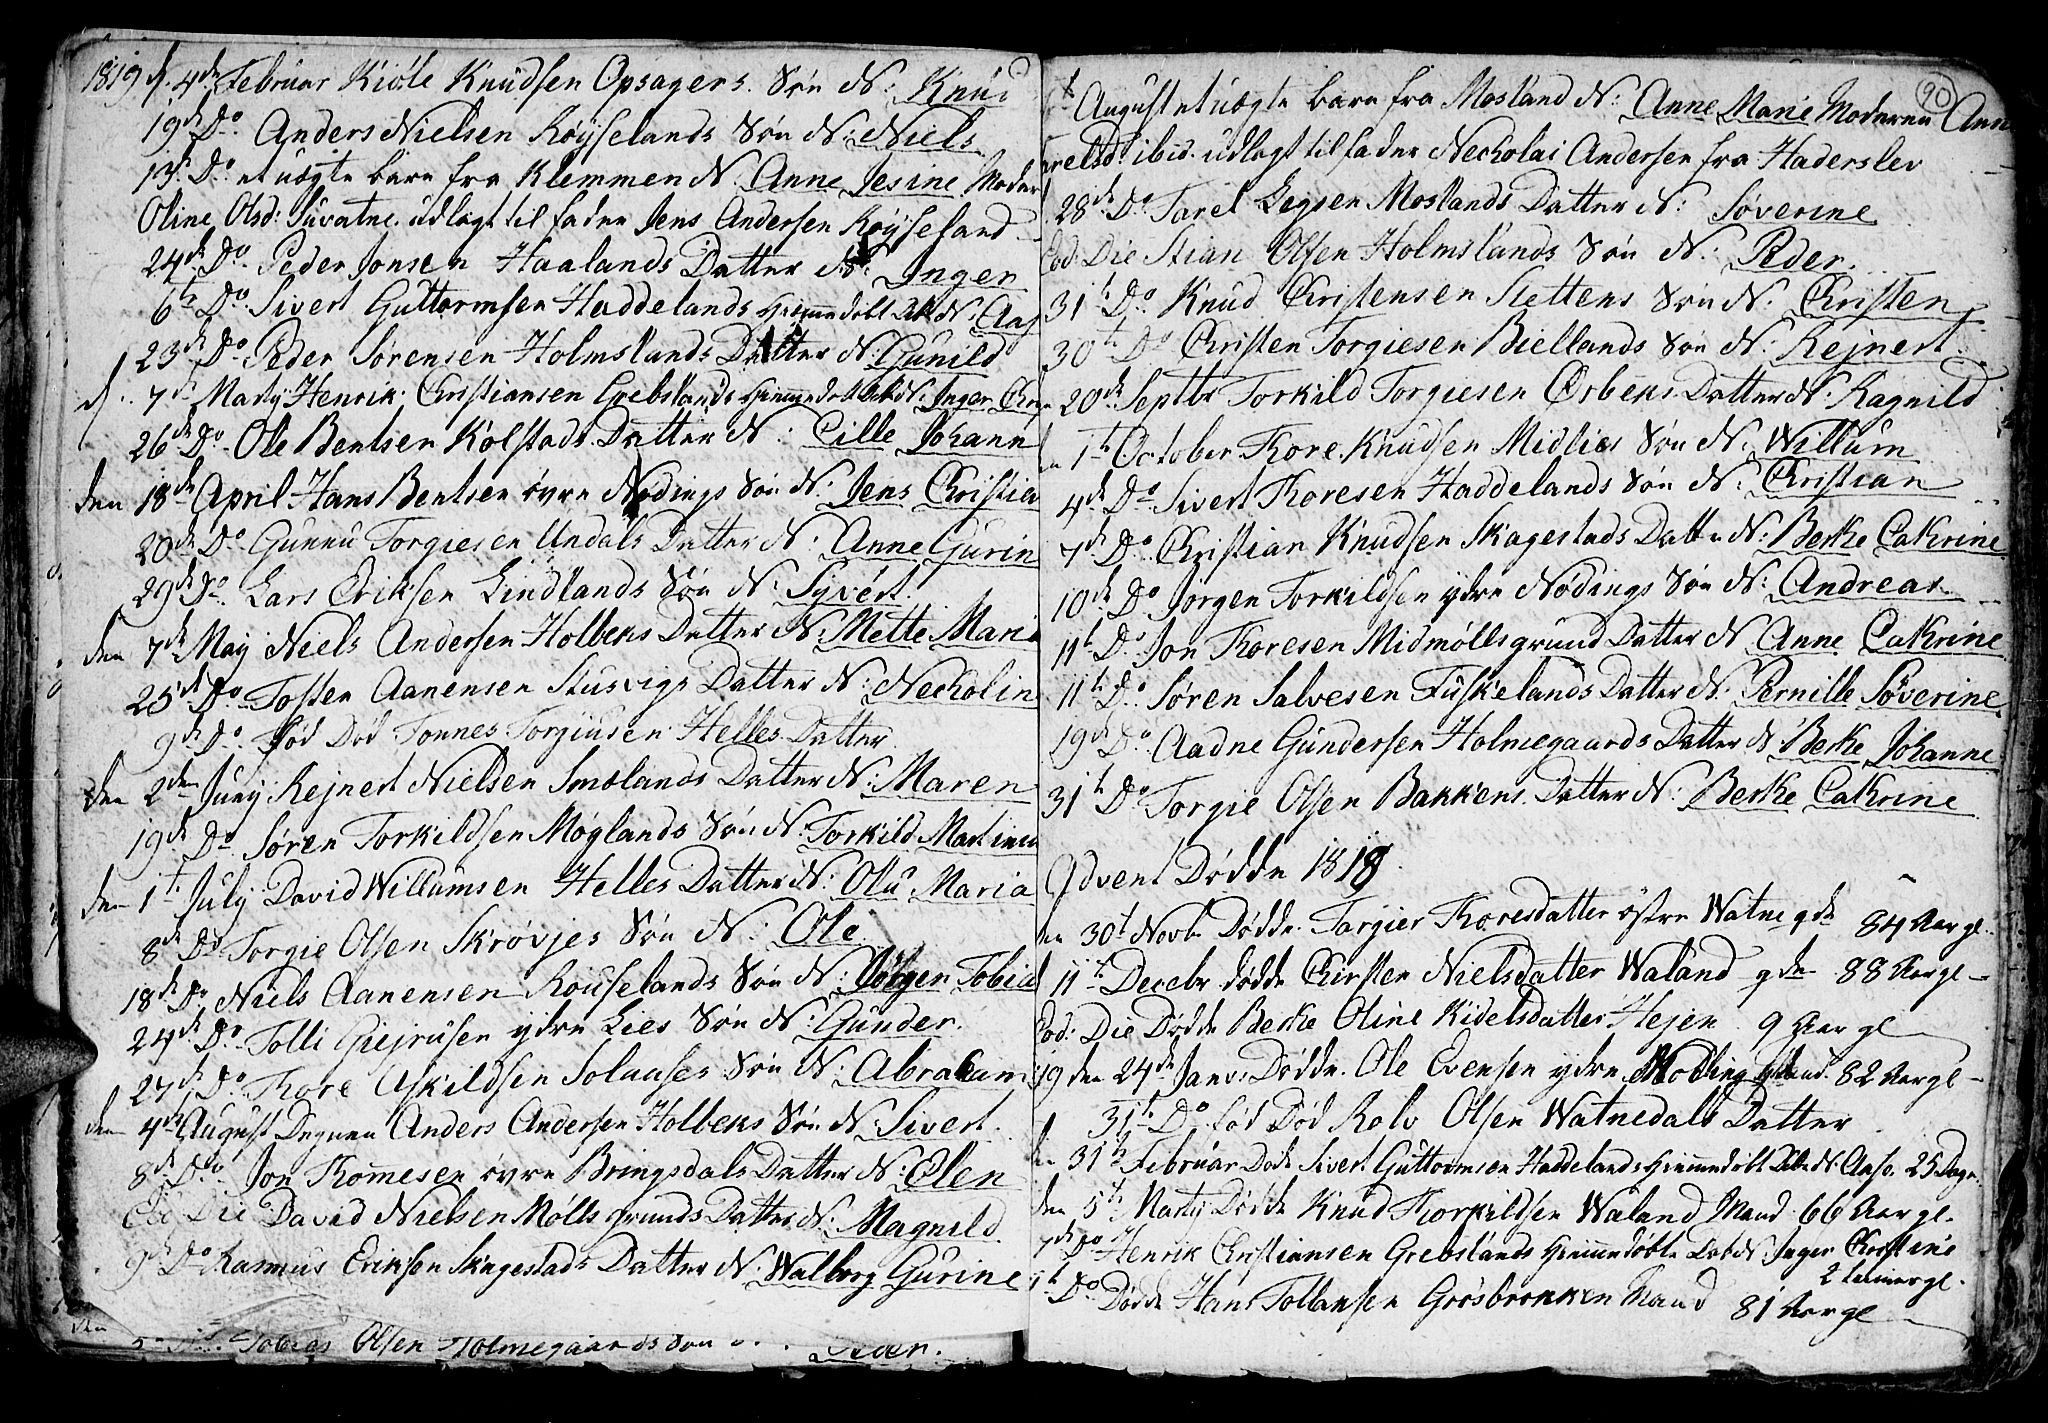 1819 d. 4de Februar Kiøle Knudsen Opsagers Søn N: Knud
19de Do Anders Nielsen Røyselands Søn N: Niels
13de Do et uægte barn fra Klemmen N. Anne Jesine Moder
Oline Olsd: Juvatne udlagt til fader Jens Andersen Røyseland
24de Do Peder Jonsen Haalands Datter N: Inger
6te Do Sivert Guttormsen Haddelands Hiemmedøbt N: Aas
23de Do Peder Sørensen Holmslands Datter N: Gunild
d. 7de Marty Henrik Christiansen Grebslands Hiemmedøbt N: Inger Chr
26de Do Ole Bentsen Kolstads Datter N: Cille Johann
den 18de April Hans Bentsen øvre Nødings Søn N: Jens Christian
20de Do Gunnu Torgiesen Undals Datter N: Anne Gurin
29de Do Lars Eriksen Lindlands Søn N: Syvert
den 7de May Niels Andersen Holbeks Datter N: Mette Mari
25de Do Tosten Aanensen Stusvigs Datter N: Necholin
9de Do Fød Død Tønnes Torjiusen Helles Datter
den 2den Juny Rejnert Nielsen Smølands Datter N: Maren
19de Do Søren Torkildsen Møglands Søn N: Torkild Martinus
den 1t July David Willumsen Helles Datter N: Olu Maria
8de Do Torgie Olsen Skrøvjes Søn N: Ole
18de Do Niels Aanensen Røuselands Søn N: Jørgen Tobia
24de Do Tolli Giejrusen ydre Lies Søn N: Gunder
27de Do Tore Askildsen Solaases Søn N: Abraham
den 4de August Degnen Anders Andersen Holbeks Søn N: Sivert
8de Do Jon Thomesen øvre Bringsdals Datter N: Elen
Eod Die David Nielsen Mølls grunds Datter N: Magnild
9de Do Rasmus Eriksen Skagestads Datter N: Walborg Gurine
Tobias Olsen Holmegaards Søn Peder
90
August et uægte barn fra Mosland N: Anne Marie Moderen Ann
ibid. udlagt til fader Necholai Andersen fra Haderslev
28de Do Tarel Moslands Datter N: Søverine
Eod: Die Stian Olsen Holmslands Søn N: Peder
31te Do Knud Christensen Slettens Søn N: Christen
30te Do Christen Torgiesen Biellands Søn N: Rejnert
20de Septbr Torkild Torgiesen Ørbeks Datter N: Ragnild
1te October Tore Knudsen Midlies Søn N: Willum
4de Do Sivert Thoresen Haddelands Søn N: Christian
7de Do Christian Knudsen Skagestads Datter N: Berthe Cathrine
10de Do Jørgen Torkildsen ydre Nødings Søn N: Andreas
11te Do Jon Thoresen Midmøllsgrund Datter N: Anne Cathrine
11te Do Søren Salvesen Fuskelands Datter N: Pernille Søverine
19de Do Aadne Gundersen Holmegaards Datter N: Berthe Johanne
31te Do Torgie Olsen Bakkens Datter N: Berthe Cathrine
Advent Dødde 1818
den 30te Novbr Dødde Targier Thoresdatter østre Watne gde 84 Aar gl.
11te Decebr Dødde Chirsten Nielsdatter Waland gde 88 Aar gl
Eod: Die Dødde Berthe Oline Kidelsdatter Hejen 9 Aar gl
19 den 24de Janv: Dødde Ole Evensen ydre Nøding gl Mand 82 Aar gl
31te Do fød Død Rolv Olsen Watnedals Datter
31te Februar Døde Sivert Guttormsen Haddelands Hiemmedøbt N: Aase 25 Dage
den 5te Marty Dødde Knud Thorkildsen Waland Mand 66 Aar gl.
7de Do Henrik Christiansen Grebslands Hiemmedøbte N: Inger Christine
2 gl.
Do Dødde Hans Tollansen Grøsbrokken Mand 81 Aar gl